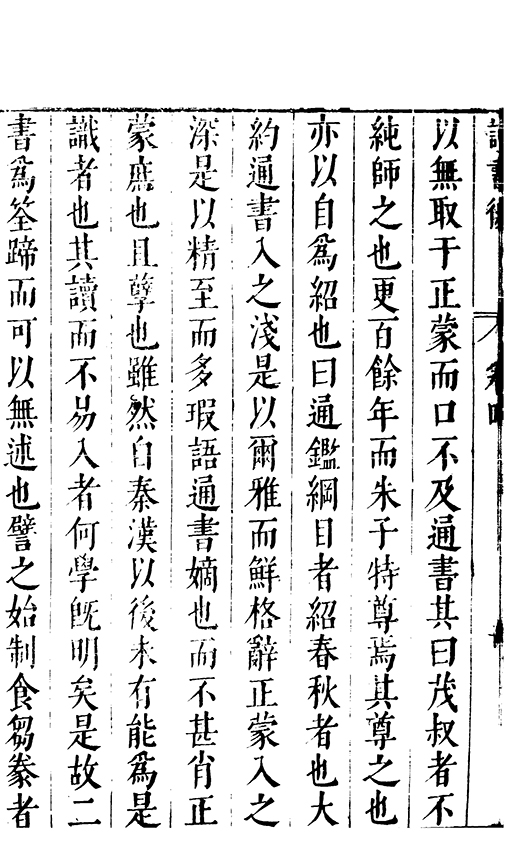 讀書後 卷四
以無取于正蒙而口不及通書其曰茂叔者不
純師之也更百餘年而朱子特尊焉其尊之也
亦以自為紹也曰通鑑綱目者紹春秋者也大
約通書入之淺是以爾雅而鮮格辭正蒙入之
深是以精至而多瑕語通書嫡也而不甚肖正
蒙庶也且孽也雖然自秦漢以後未有能為是
識者也其讀而不易入者何學旣明矣是故二
書為筌蹄而可以無述也譬之始制食芻豢者